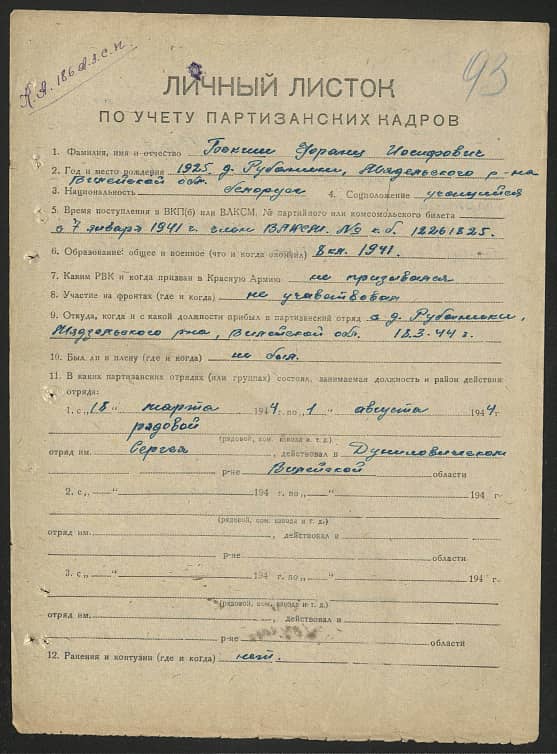 93
ЛИЧНЫЙ ЛИСТОК
ПО УЧЕТУ ПАРТИЗАНСКИХ КАДРОВ
1. Фамилия, имя и отчество Франц Иосифович
2. Год и место рождения 1925, д. Мядельского р-на
Вилейской обл.
3. Национальность белорус 4. Соцположение учащийся
5. Время поступления в ВКП(б) или ВЛКСМ, № партийного или комсомольского билета
с 7 января 1941 г. член ВЛКСМ. № к.б. 18261825.
6. Образование: общее и военное (что и когда окончил) 8 кл. 1941.
7. Каким РВК и когда призван в Красную Армию не призывался
8. Участие на фронтах (где и когда) не участвовал
9. Откуда, когда и с какой должности прибыл в партизанский отряд с д.
Мядзельского р-на, Вилейской обл. 18.3.44 г.
10. Был ли в плену (где и когда) не был.
11. В каких партизанских отрядах (или группах) состоял, занимаемая должность и район действия
отряда:
1. с „18 “ марта 1944 г. по „1 “ августа 1944 г.
рядовой
(рядовой, ком. взвода и т. д.)
отряд им. Сергея , действовал в Дуниловичском
р-не Вилейской области
2. с „ “ 194 г. по „ “ 194 г.
(рядовой, ком. взвода и т. д.)
отряд им. , действовал в
р-не области
3. с „ “ 194 г. по „ “ 194 г.
(рядовой, ком. взвода и т. д.)
отряд им. , действовал в
р-не области
12. Ранения и контузии (где и когда) нет.